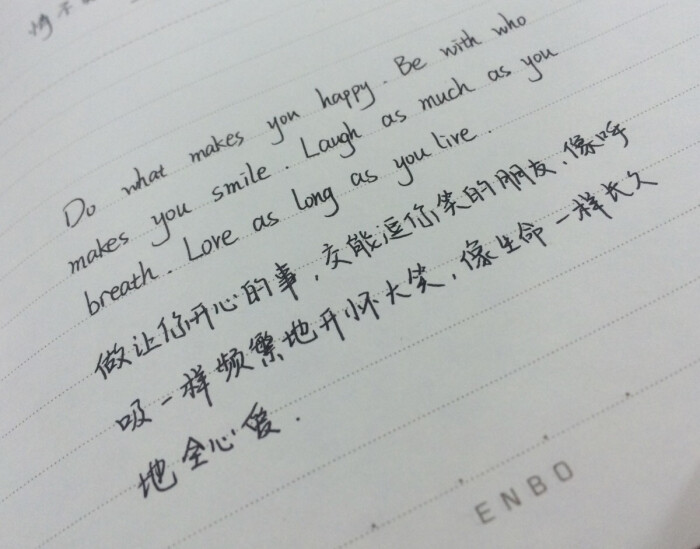 Do what makes you happy. Be with who
makes you smile. Laugh as much as you
breath. Love as long as you live.
做让你开心的事，交能逗你笑的朋友，像呼
吸一样频繁地开怀大笑，像生命一样长久
地全心爱.
ENBO